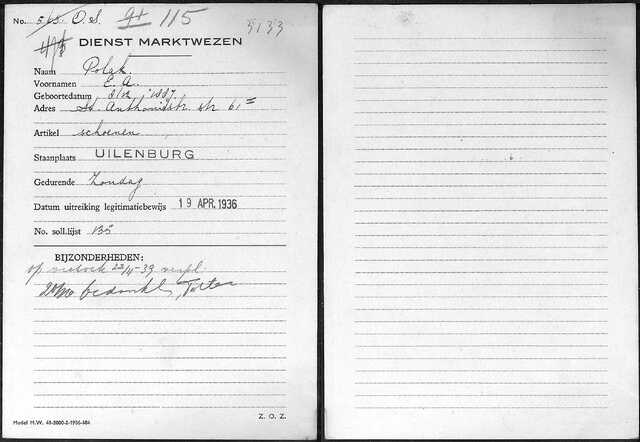 No. 563 O.S. 91 115 5133
DIENST MARKTWEZEN
Naam Polak.
Voornamen E. A.
Geboortedatum 1887.
Adres St. Anthoniesbr. str 61
Artikel schoenen
Staanplaats UILENBURG
Gedurende Zondag
Datum uitreiking legitimatiebewijs 19 APR. 1936
No. soll.lijst
BIJZONDERHEDEN:
op verzoek 23/11-39
bedankt,
Z. O. Z.
Model M.W. 48-5000-2-1936-684